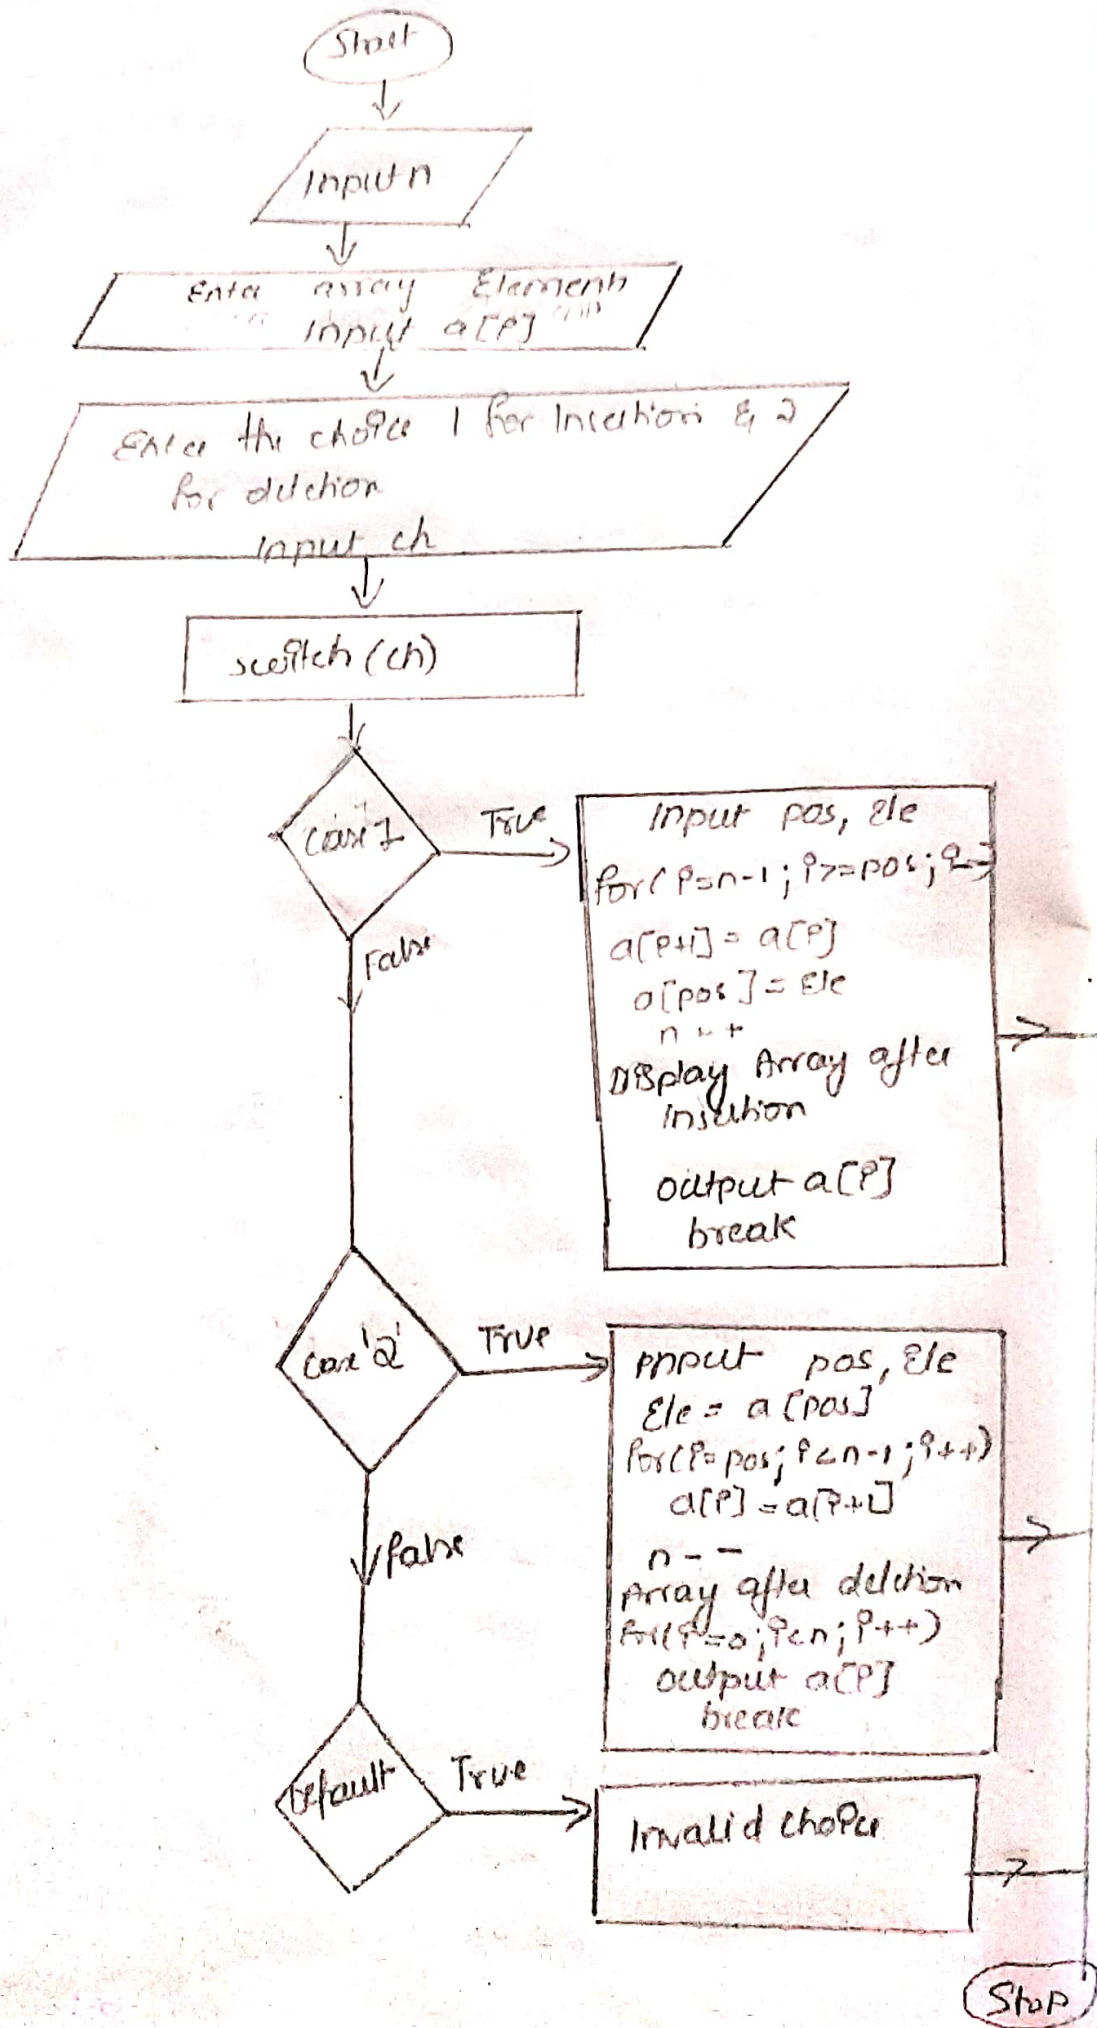 Start
Input n
Enter array Elements
Input a[i]
Enter the choice 1 for Insertion & 2
for deletion
Input ch
switch (ch)
case 1
True
Input pos, Ele
for(i=n-1; i>=pos; i--)
a[i+1] = a[i]
a[pos] = Ele
n++
Display Array after
Insertion
output a[i]
break
False
case '2'
True
Input pos, Ele
Ele = a[pos]
for(i=pos; i<n-1; i++)
a[i] = a[i+1]
n--
Array after deletion
for(i=0; i<n; i++)
output a[i]
break
false
Default
True
Invalid choice
Stop